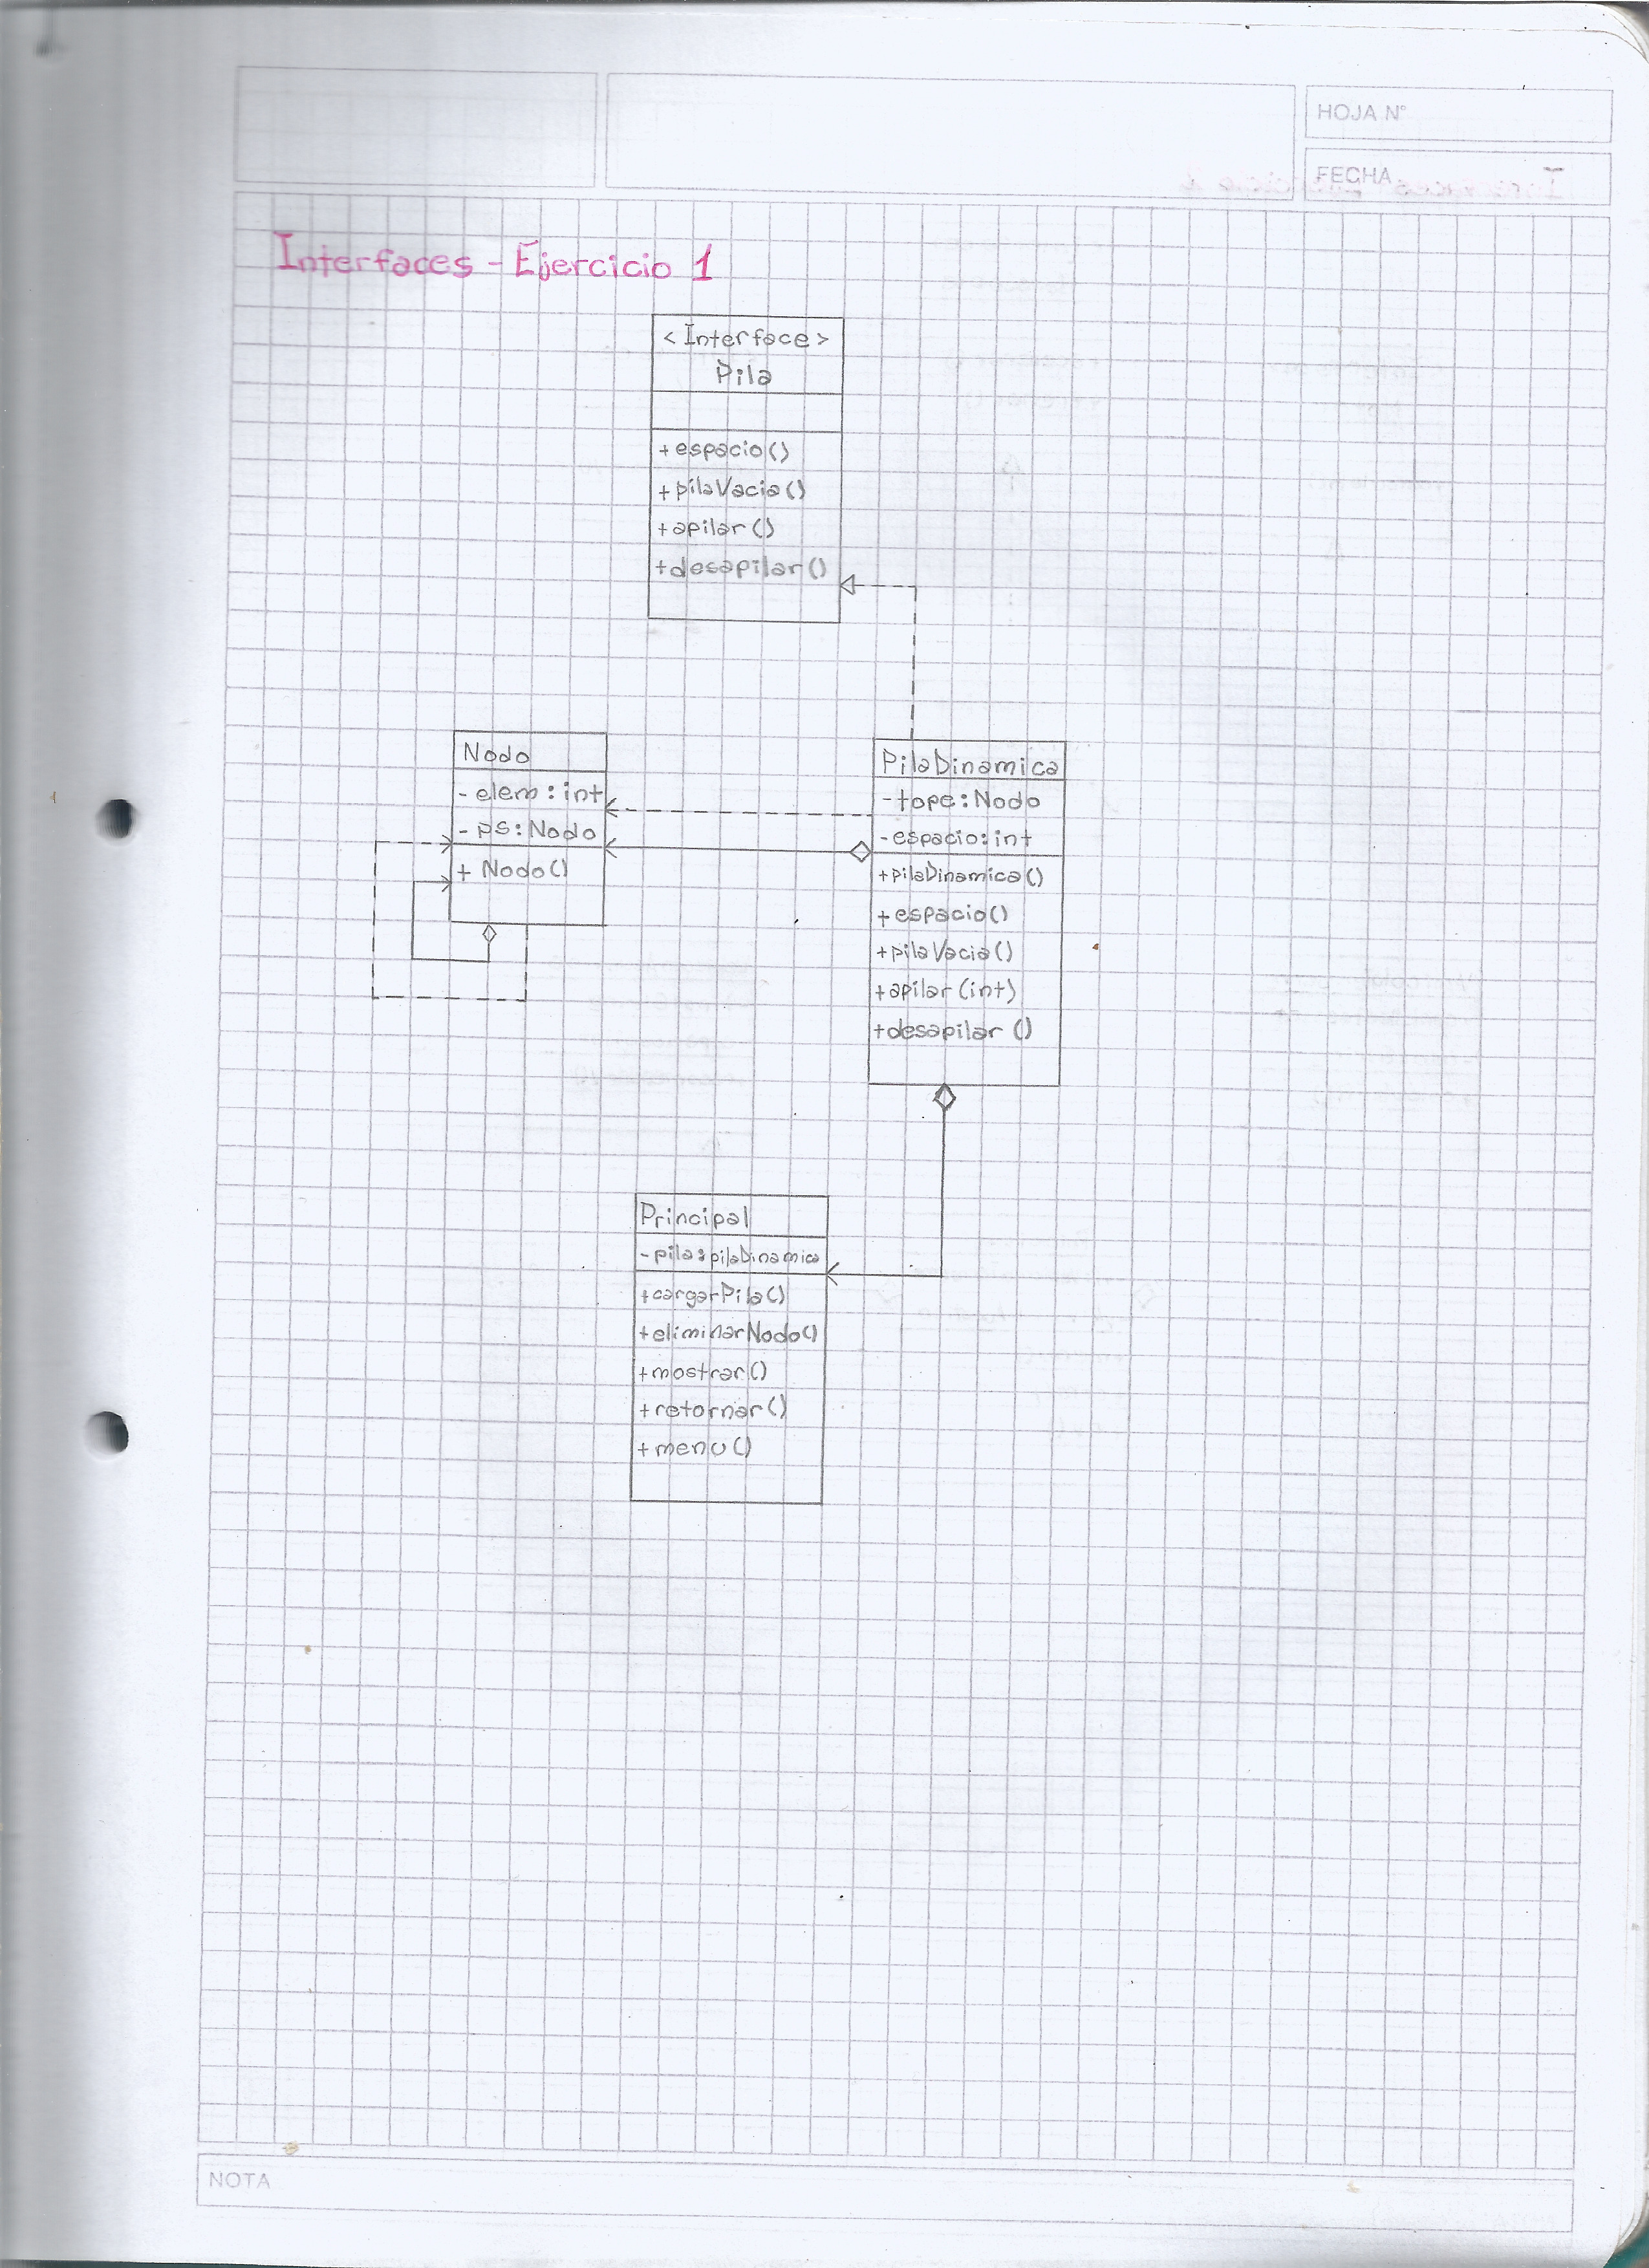 HOJA N°
FECHA
Interfaces - Ejercicio 1
<Interface>
Pila
+espacio()
+pilaVacia()
+apilar()
+desapilar()
Nodo
- elem : int
- ps : Nodo
+ Nodo()
PilaDinamica
-tope: Nodo
-espacio: int
+pilaDinamica()
+espacio()
+pilaVacia()
+apilar (int)
+desapilar ()
Principal
-pila: pilaDinamica
+cargarPila()
+eliminarNodo()
+mostrar()
+retornar()
+menu()
NOTA